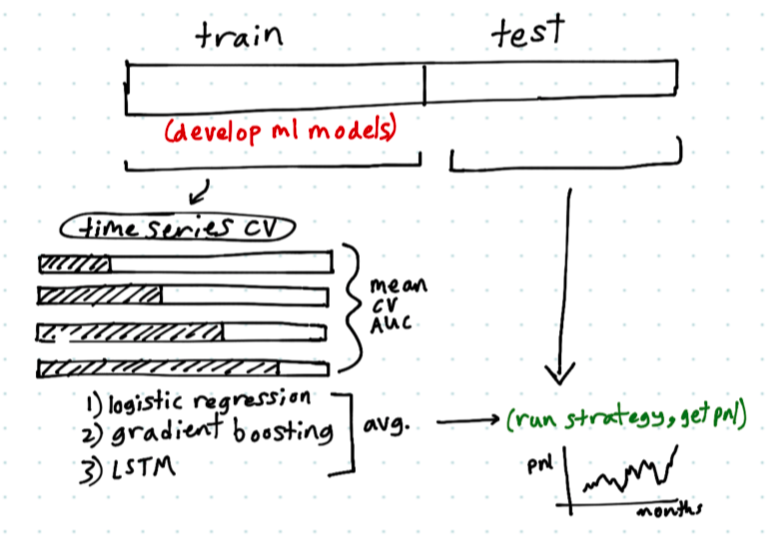 train
test
(develop ml models)
time series CV
mean
CV
AUC
1) logistic regression
2) gradient boosting
3) LSTM
avg.
(run strategy, get pnl)
pnl
months